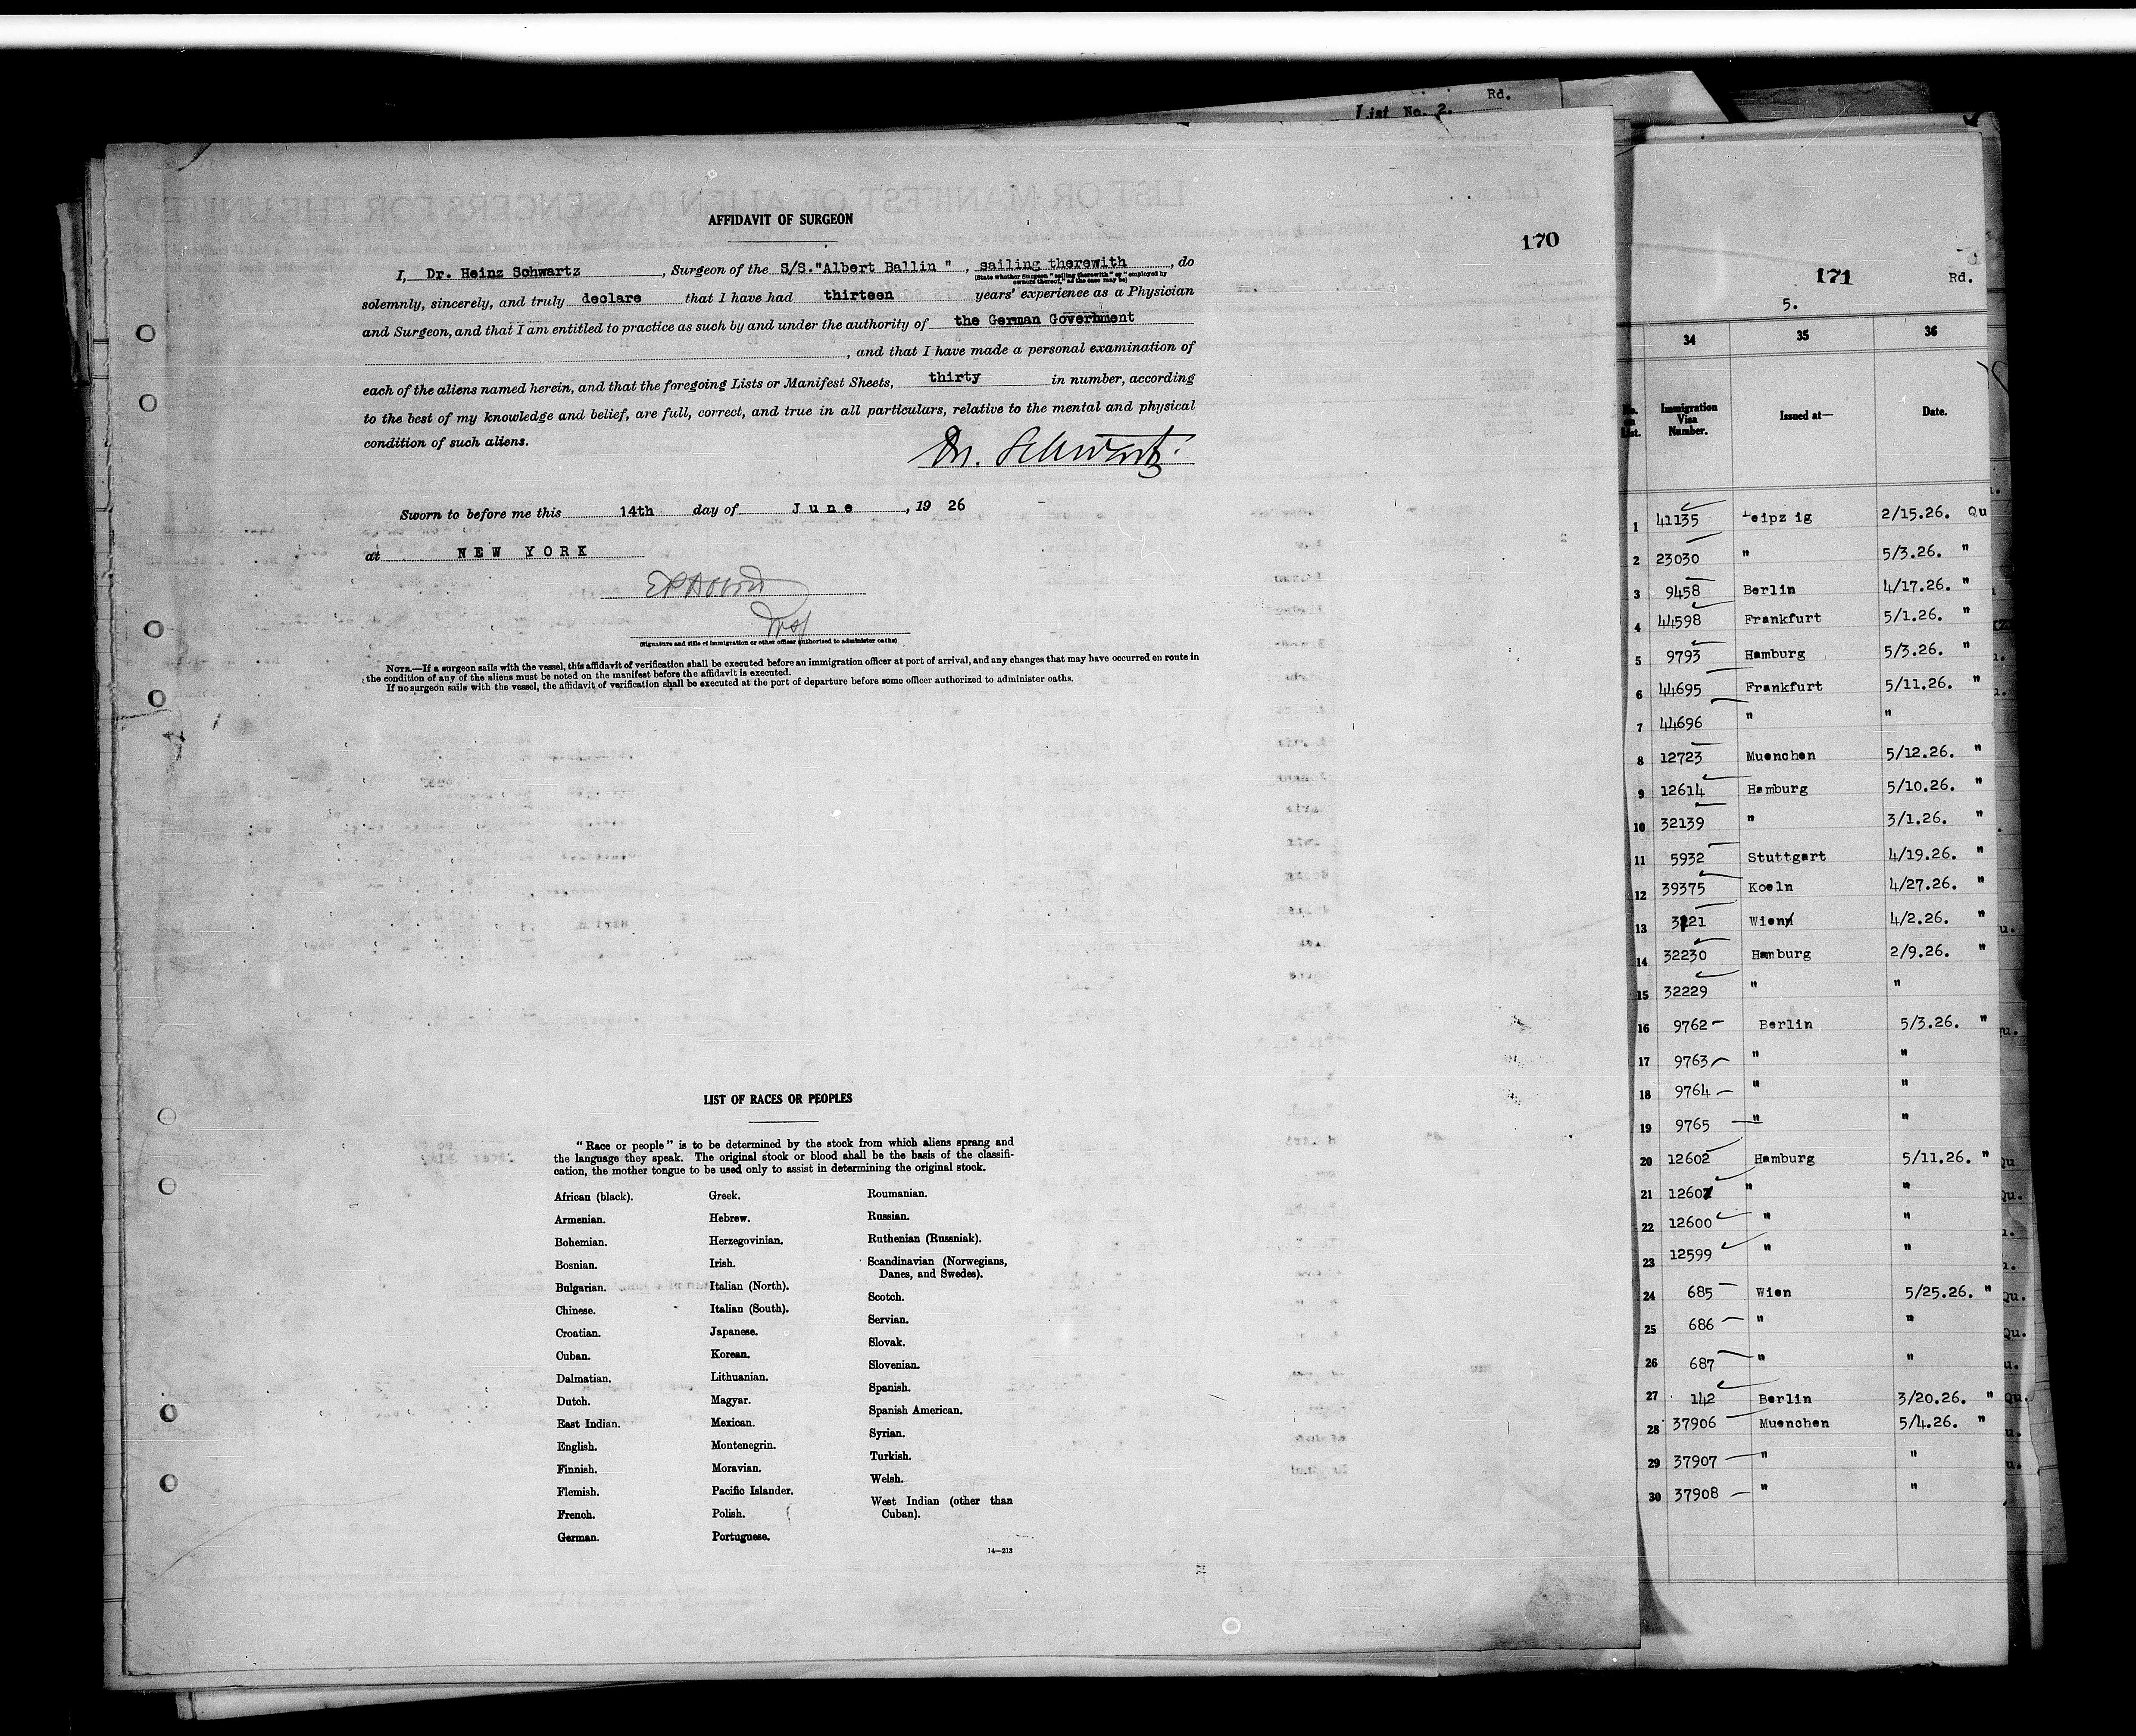 Rd.
List No. 2.
AFFIDAVIT OF SURGEON
170
I, Dr. Heinz Schwartz, Surgeon of the S/S."Albert Ballin ", sailing therewith, do
(State whether Surgeon "sailing therewith" or "employed by
owners thereof," as the case may be)
solemnly, sincerely, and truly declare that I have had thirteen years' experience as a Physician
and Surgeon, and that I am entitled to practice as such by and under the authority of the German Government
, and that I have made a personal examination of
each of the aliens named herein, and that the foregoing Lists or Manifest Sheets, thirty in number, according
to the best of my knowledge and belief, are full, correct, and true in all particulars, relative to the mental and physical
condition of such aliens.
Dr. Schwartz.
Sworn to before me this 14th day of June, 19 26
at NEW YORK
(Signature and title of immigration or other officer authorized to administer oaths)
NOTE.—If a surgeon sails with the vessel, this affidavit of verification shall be executed before an immigration officer at port of arrival, and any changes that may have occurred en route in
the condition of any of the aliens must be noted on the manifest before the affidavit is executed.
If no surgeon sails with the vessel, the affidavit of verification shall be executed at the port of departure before some officer authorized to administer oaths.
LIST OF RACES OR PEOPLES
"Race or people" is to be determined by the stock from which aliens sprang and
the language they speak. The original stock or blood shall be the basis of the classifi-
cation, the mother tongue to be used only to assist in determining the original stock.
African (black).
Armenian.
Bohemian.
Bosnian.
Bulgarian.
Chinese.
Croatian.
Cuban.
Dalmatian.
Dutch.
East Indian.
English.
Finnish.
Flemish.
French.
German.
Greek.
Hebrew.
Herzegovinian.
Irish.
Italian (North).
Italian (South).
Japanese.
Korean.
Lithuanian.
Magyar.
Mexican.
Montenegrin.
Moravian.
Pacific Islander.
Polish.
Portuguese.
Roumanian.
Russian.
Ruthenian (Russniak).
Scandinavian (Norwegians,
Danes, and Swedes).
Scotch.
Servian.
Slovak.
Slovenian.
Spanish.
Spanish American.
Syrian.
Turkish.
Welsh.
West Indian (other than
Cuban).
14—213
171 Rd.
5.
34 35 36
No. on List. Immigration Visa Number. Issued at— Date.
1 41135 Leipzig 2/15.26. Qu
2 23030 " 5/3.26. "
3 9458 Berlin 4/17.26. "
4 44598 Frankfurt 5/1.26. "
5 9793 Hamburg 5/3.26. "
6 44695 Frankfurt 5/11.26. "
7 44696 " "
8 12723 Muenchen 5/12.26. "
9 12614 Hamburg 5/10.26. "
10 32139 " 3/1.26. "
11 5932 Stuttgart 4/19.26. "
12 39375 Koeln 4/27.26. "
13 Wien 4/2.26. "
14 32230 Hamburg 2/9.26. "
15 32229 " "
16 9762 Berlin 5/3.26. "
17 9763 " "
18 9764 " "
19 9765 " "
20 12602 Hamburg 5/11.26. "
21 12601 " "
22 12600 " "
23 12599 " "
24 685 Wien 5/25.26. "
25 686 " "
26 687 " "
27 142 Berlin 3/20.26. "
28 37906 Muenchen 5/4.26. "
29 37907 " "
30 37908 " "